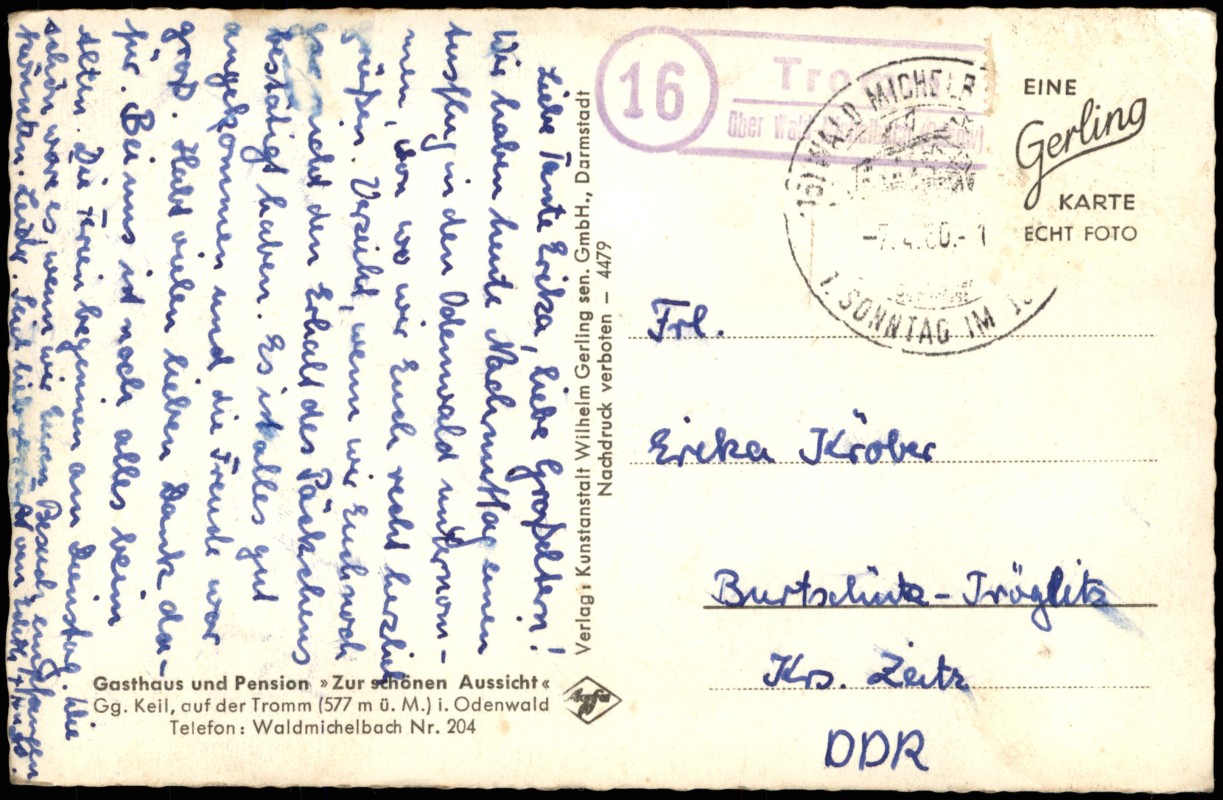 Liebe Tante Erika, liebe Großeltern!
Wir haben heute Nachmittag einen
Ausflug in den Odenwald unternom-
men, von wo wir Euch recht herzlich
grüßen. Verzeiht, wenn wir Euch noch
gar nicht den Erhalt des Päckchens
bestätigt haben. Es ist alles gut
angekommen und die Freude war
groß. Habt vielen lieben Dank da-
für. Bei uns ist noch alles beim
alten. Die Ferien beginnen am Dienstag. Wie
schön wäre es, wenn wir Euren Besuch empfangen
könnten. Leider. Seid
Gasthaus und Pension »Zur schönen Aussicht«
Gg. Keil, auf der Tromm (577 m ü. M.) i. Odenwald
Telefon: Waldmichelbach Nr. 204
Agfa
Verlag: Kunstanstalt Wilhelm Gerling sen. GmbH., Darmstadt
Nachdruck verboten – 4479
16
Tro
über Wald
(16) WALD MICHELB
-7.4.60.-1
1. SONNTAG IM
EINE
Gerling
KARTE
ECHT FOTO
Frl.
Erika Kröber
Burtschütz-Tröglitz
Krs. Zeitz
DDR